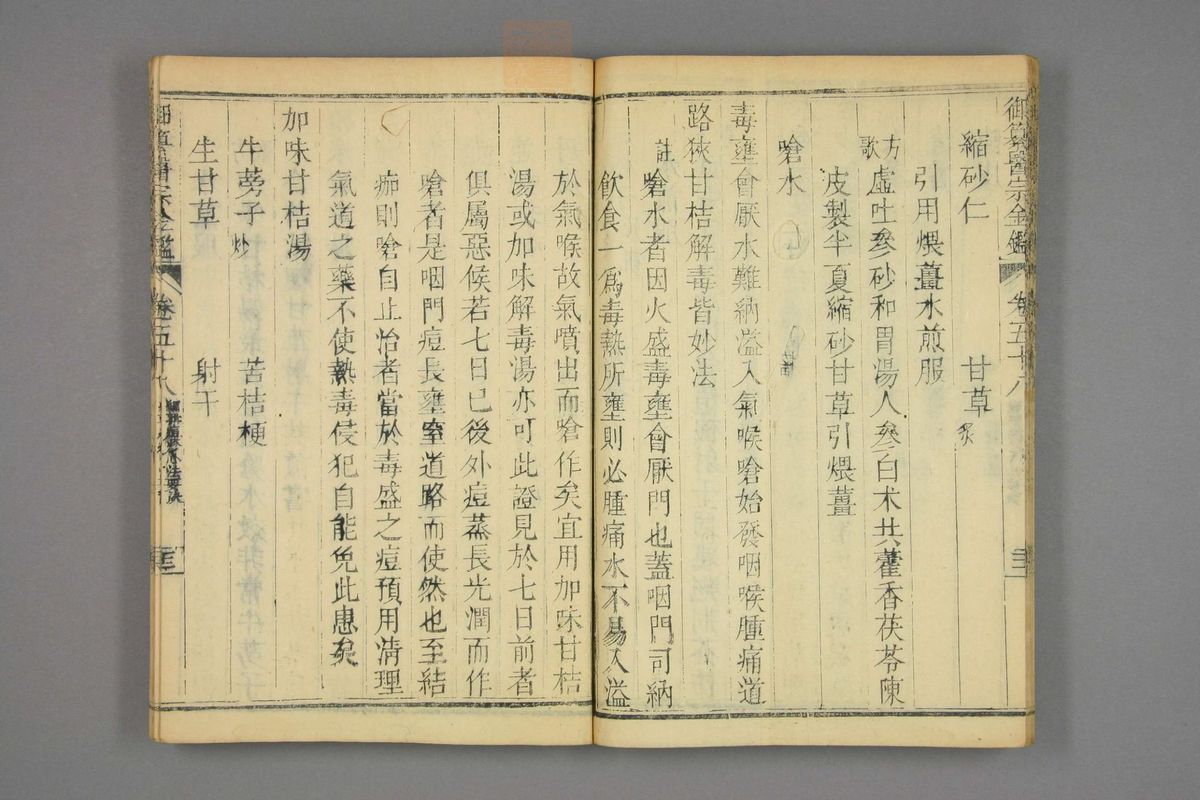 御纂醫宗金鑑 卷五十八
縮砂仁 甘草炙
引用煨薑水煎服
方歌 虛吐參砂和胃湯人參白术共藿香茯苓陳
皮製半夏縮砂甘草引煨薑
嗆水
毒壅會厭水難納溢入氣喉嗆始發咽喉腫痛道
路狹甘桔解毒皆妙法
註 嗆水者因火盛毒壅會厭門也蓋咽門司納
飲食一為毒熱所壅則必腫痛水不易入溢
於氣喉故氣噴出而嗆作矣宜用加味甘桔
湯或加味解毒湯亦可此證見於七日前者
俱屬惡候若七日已後外痘蒸長光潤而作
嗆者是咽門痘長壅窒道路而使然也至結
痂則嗆自止怡者當於毒盛之痘預用清理
氣道之藥不使熱毒侵犯自能免此患矣
加味甘桔湯
牛蒡子炒 苦桔梗
生甘草 射干
御纂醫宗金鑑 卷五十八